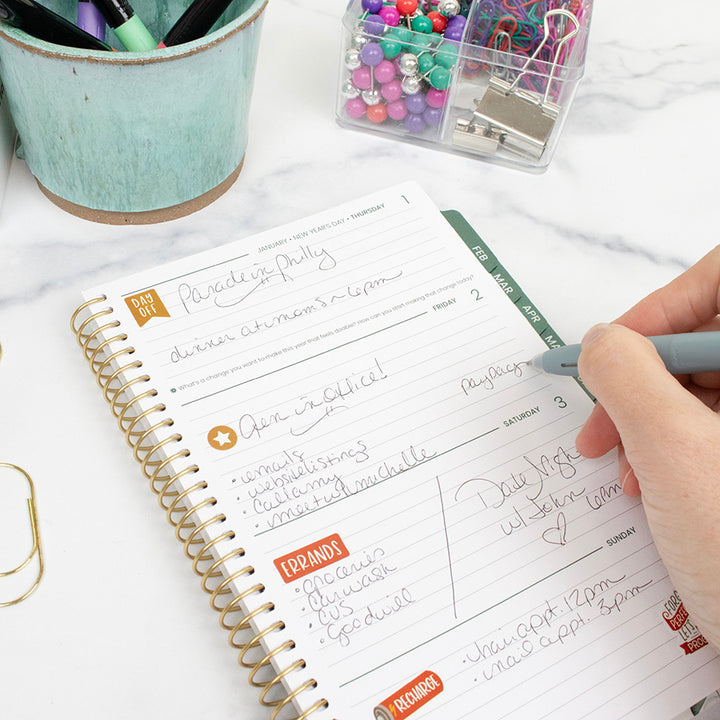 JANUARY • NEW YEAR'S DAY • THURSDAY 1
DAY OFF
Parade in Philly
dinner at moms ~ 6pm
What's a change you want to make this year that feels doable? How can you start making that change today?
FRIDAY 2
Open in Office!
payday
• emails
• website listings
• call amy
• meet w/ michelle
SATURDAY 3
ERRANDS
• groceries
• car wash
• CVS
• Goodwill
Date Night
w/ John 6pm
SUNDAY
• hair appt. 12pm
• nail appt. 3pm
RECHARGE
LET'S
FEB
MAR
APR